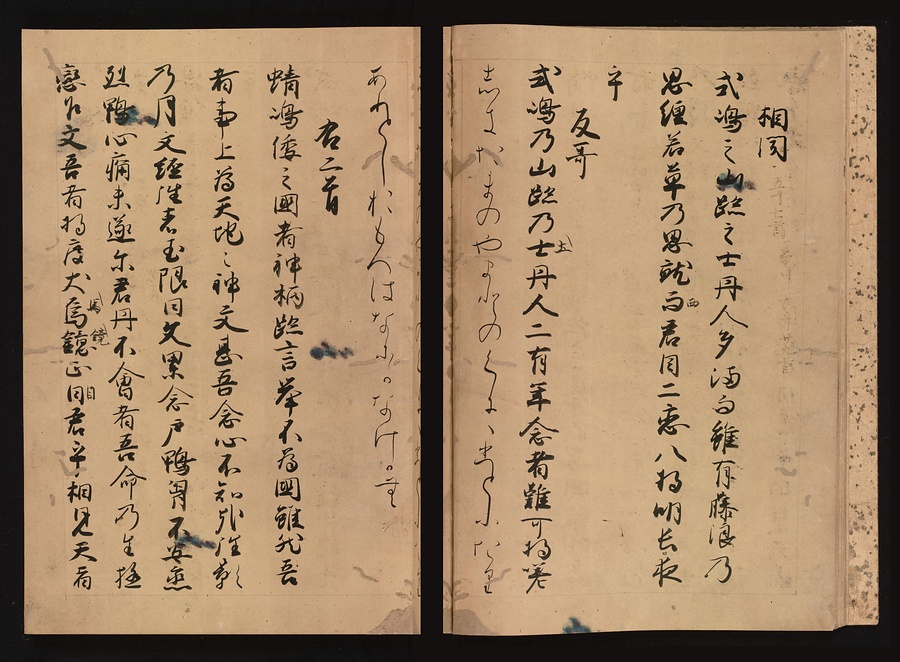 相聞
式嶋之山跡之士丹人多満而雖有藤浪乃
思纒若草乃思就而西君目二恋八将明長夜
乎
反哥
式嶋乃山跡乃士土丹人二有年念者難可将嗟
志きしまのやまとのくにゝひとふたり
ありとしおもはゝなにかなけかむ
右二首
蜻嶋倭之國者神柄跡言挙不為國雖然吾
者事上為天地之神文甚吾念心不知哉往影
乃月文経往者玉限日文累念戸鴨胷不安恋
烈鴨心痛末遂尓君丹不會者吾命乃生極
戀乍文吾者将度犬馬鏡正目君乎相見天者